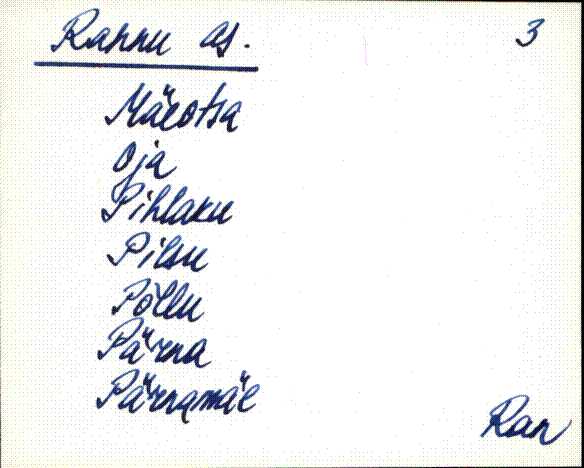 Rannu as. 3
Mäeotsa
Oja
Pihlaku
Pilsu
Põllu
Pärna
Pärnamäe
Ran